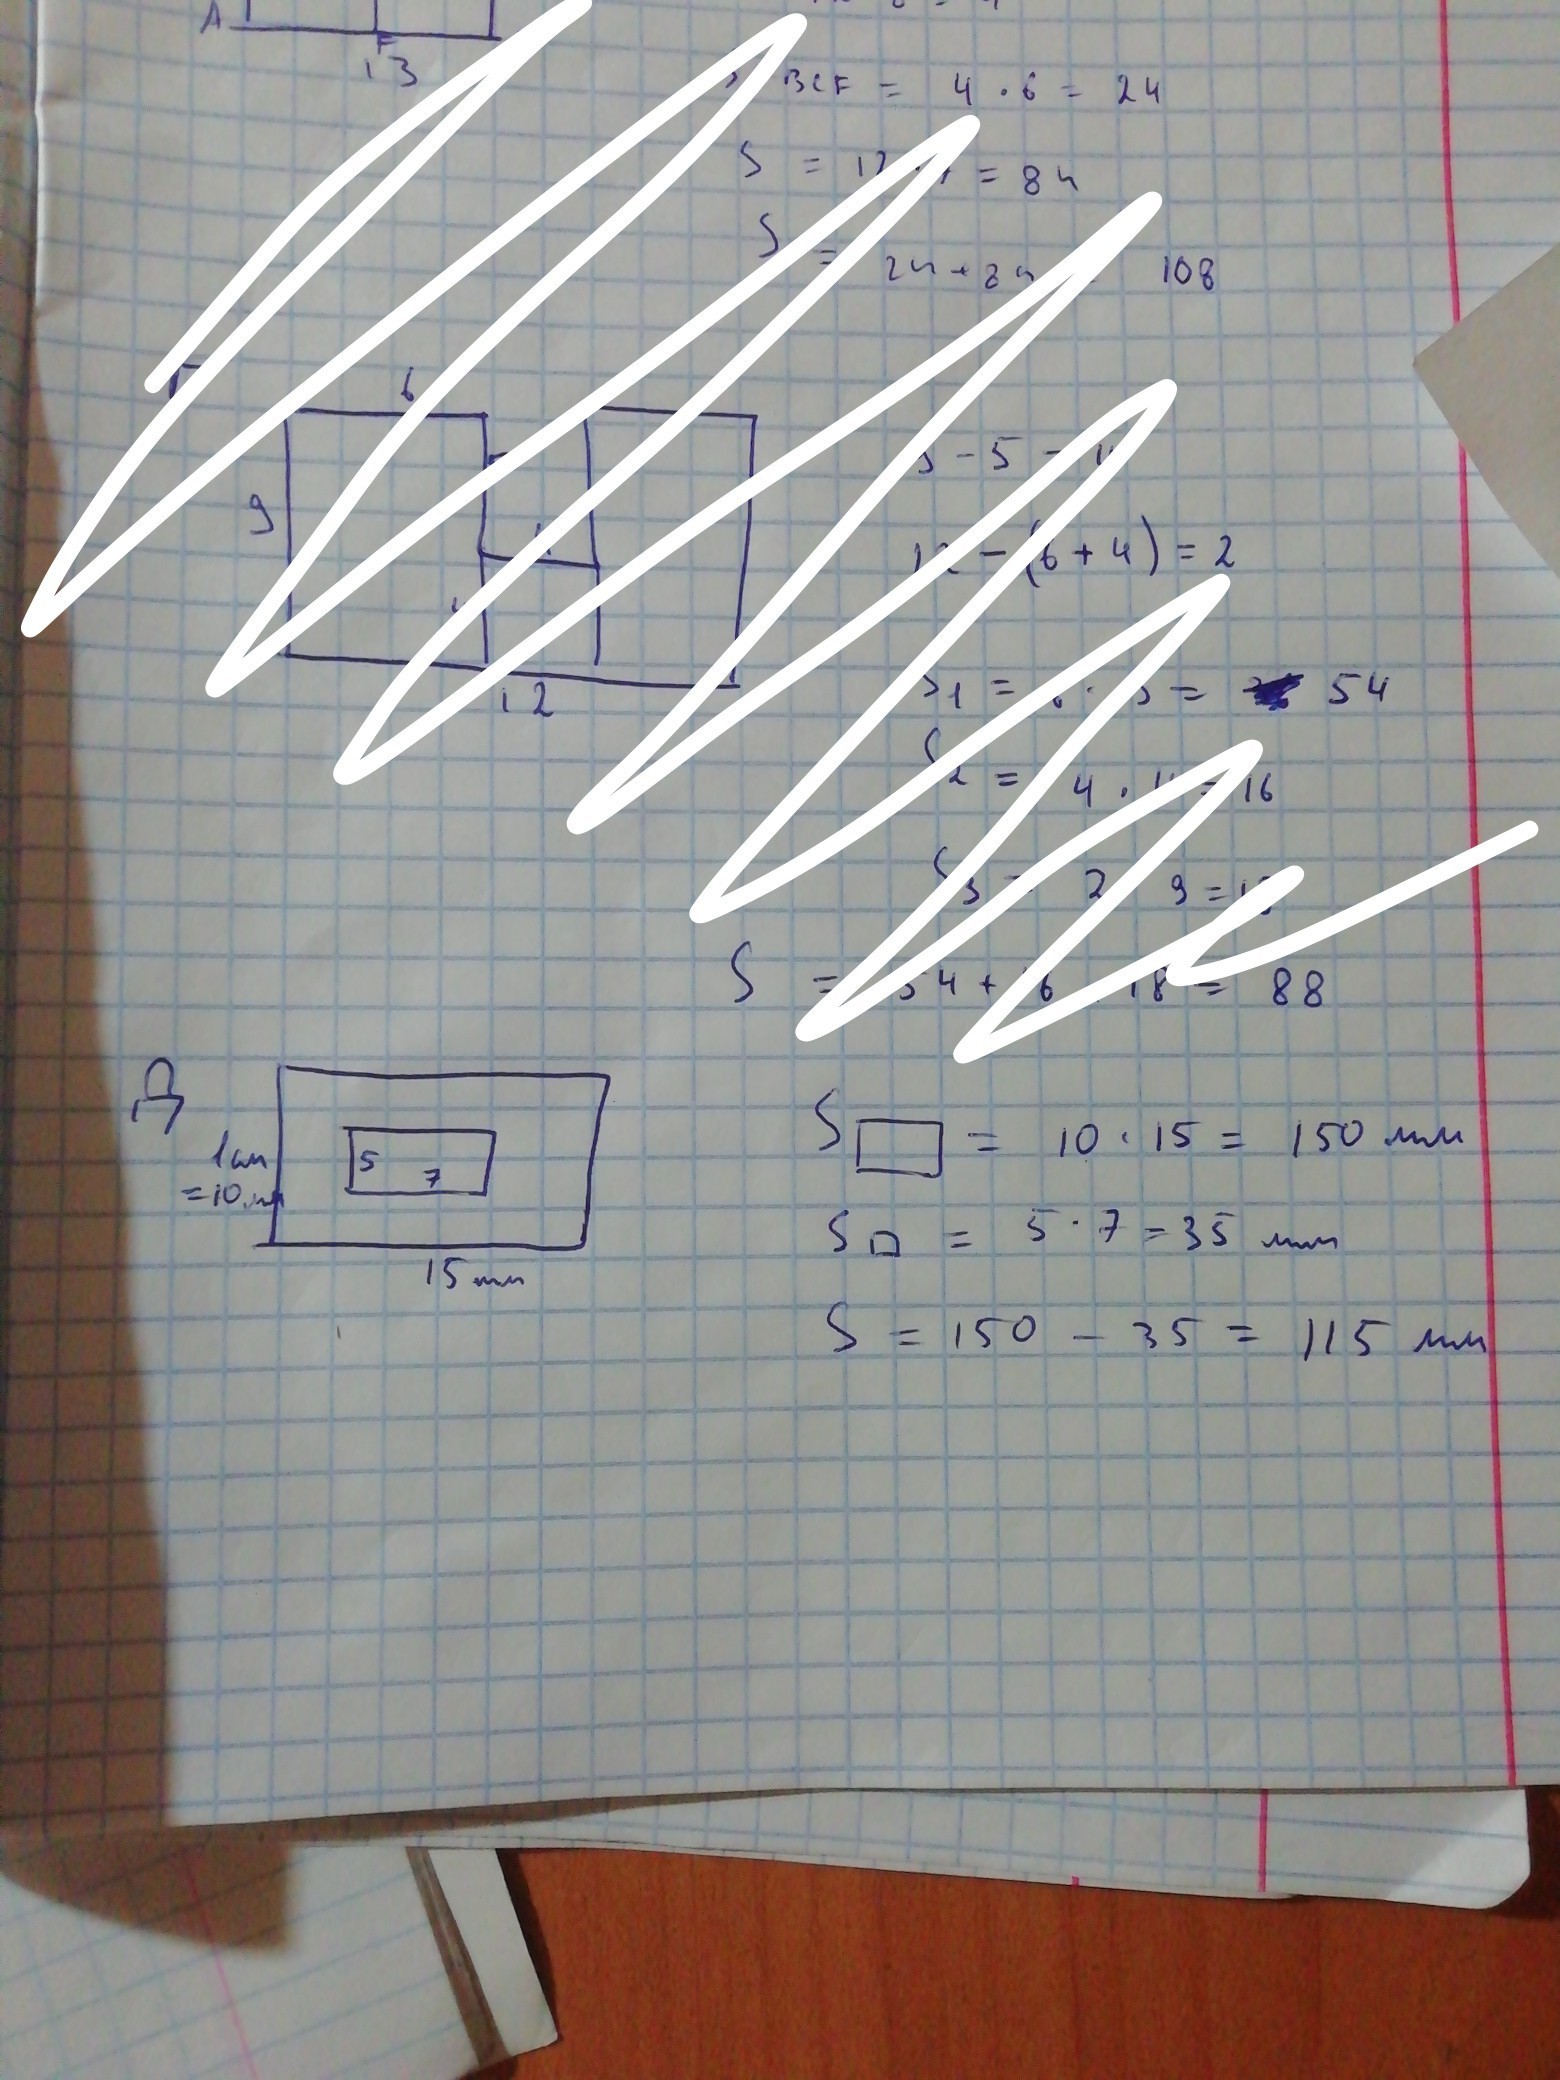 A
F
13
BCF = 4 · 6 = 24
S = = 84
S = 24 + 84 108
6
9
12
- 5 -
12 - (6 + 4) = 2
S1 = = 54
S2 = 4 · = 16
S3 = 2 9 =
S = 54 + 18 = 88
Д
1 см
= 10 мм
5
7
15 мм
S = 10 · 15 = 150 мм
S = 5 · 7 = 35 мм
S = 150 - 35 = 115 мм